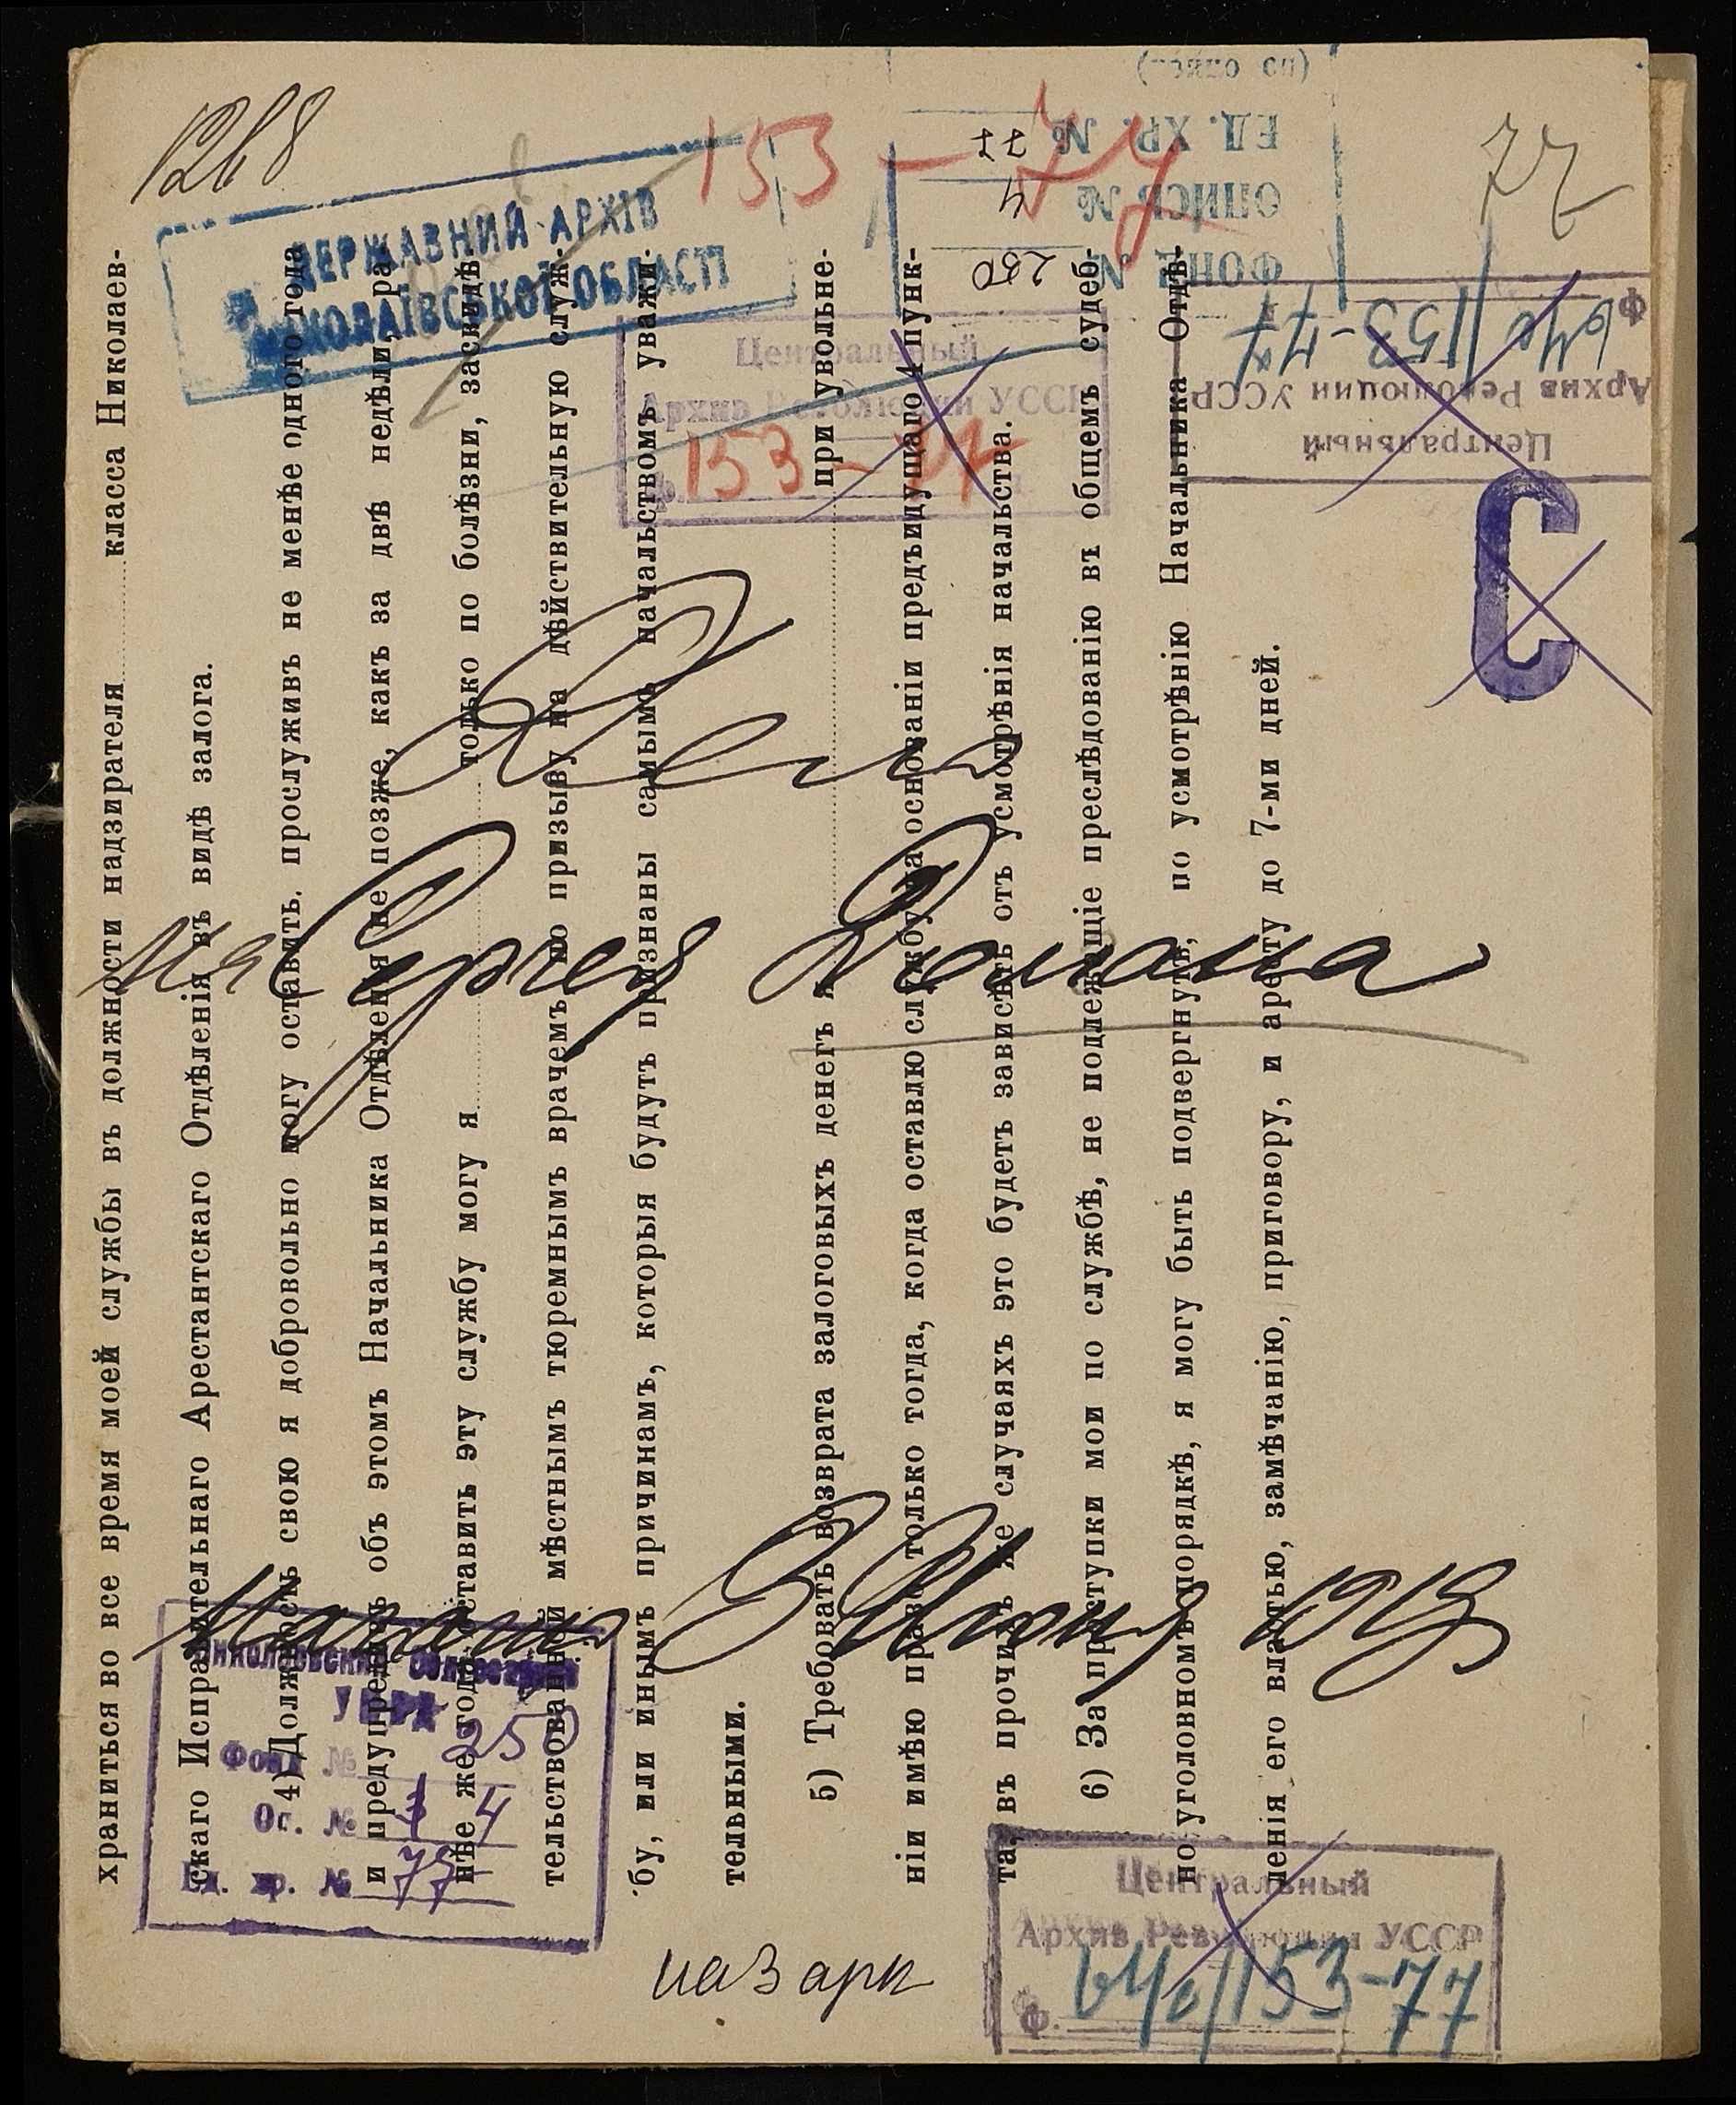 1268
ДЕРЖАВНИЙ АРХІВ
МИКОЛАЇВСЬКОЇ ОБЛАСТІ
153-77
(по опис.)
ЕД. ХР. № 77
ОПИСЬ № 4
ФОНД № 250
77
Центральный
Архив Революции УССР
Ф. 153-77
Центральный
Архив Революции УССР
Ф. 153-77
С
Дело
Сергея
Начато 3 Июня 1913
Николаевский Облгосархив
Фонд № 250
Оп. № 4
Ед. хр. № 77
на 3 арк
Центральный
Архив Революции УССР
Ф. 153-77
храниться во все время моей службы въ должности надзирателя класса Николаев-
скаго Исправительнаго Арестантскаго Отдѣленія въ видѣ залога.
4) Должность свою я добровольно могу оставить, прослуживъ не менѣе одного года
и предупредивъ объ этомъ Начальника Отдѣленія не позже, какъ за двѣ недѣли, ра-
нѣе же года оставить эту службу могу я только по болѣзни, засвидѣ-
тельствованной мѣстнымъ тюремнымъ врачемъ, по призыву на дѣйствительную служ-
бу, или инымъ причинамъ, которыя будутъ признаны самымъ начальствомъ уважи-
тельными.
5) Требовать возврата залоговыхъ денегъ я при увольне-
ніи имѣю право только тогда, когда оставлю службу на основаніи предъидущаго 4 пунк-
та, въ прочихъ же случаяхъ это будетъ зависѣть отъ усмотрѣнія начальства.
6) За проступки мои по службѣ, не подлежащіе преслѣдованію въ общемъ судеб-
но-уголовномъ порядкѣ, я могу быть подвергнутъ, по усмотрѣнію Начальника Отдѣ-
ленія его властью, замѣчанію, приговору, и аресту до 7-ми дней.